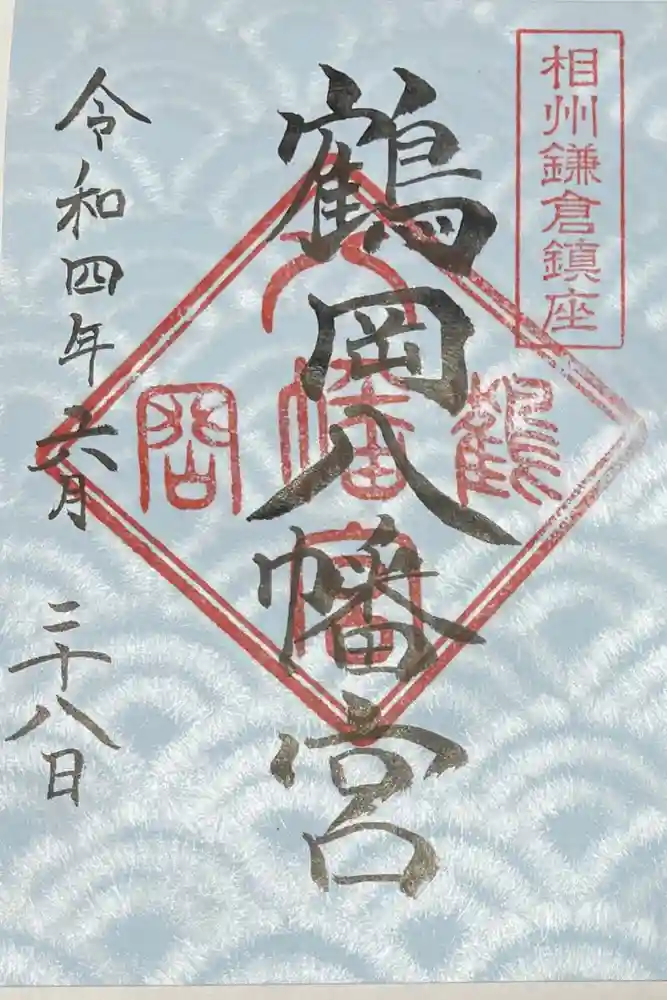 相州鎌倉鎮座
鶴岡八幡宮
八
鶴幡岡
宮
令和四年六月二十八日